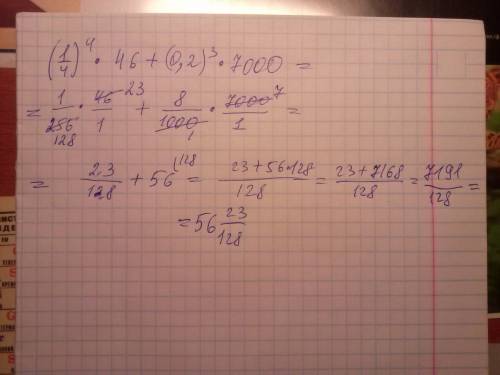 (1/4)^4 · 46 + (0,2)^3 · 7000 =
= 1/256 · 46/1 + 8/1000 · 7000/1 =
128 23 1 7
= 23/128 + 56 |128 = (23+56·128)/128 = (23+7168)/128 = 7191/128 =
= 56 23/128